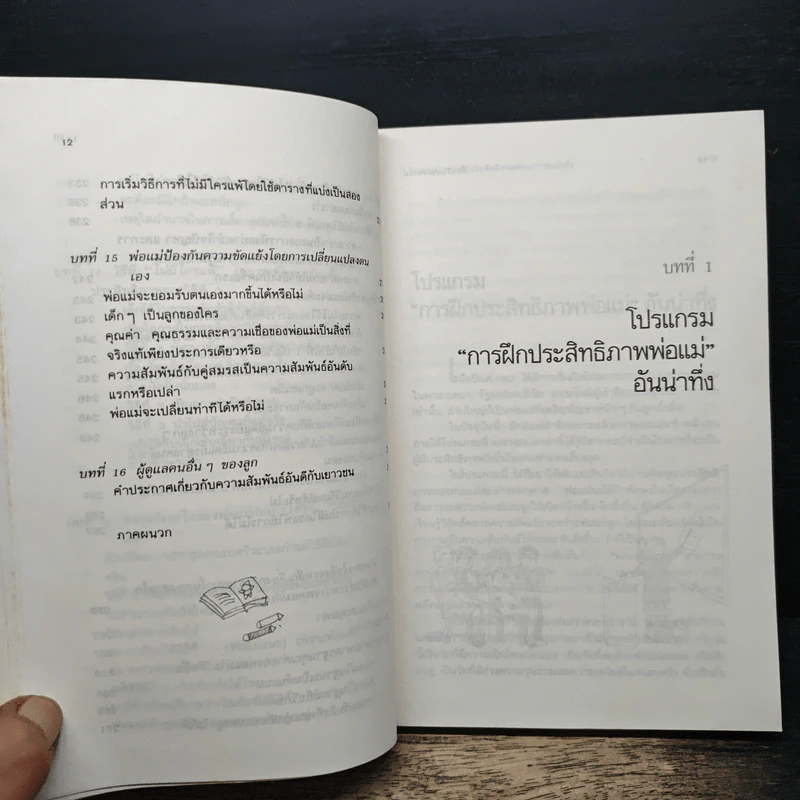 12
การเริ่มวิธีการที่ไม่มีใครแพ้โดยใช้ตารางที่แบ่งเป็นสอง
ส่วน
บทที่ 15 พ่อแม่ป้องกันความขัดแย้งโดยการเปลี่ยนแปลงตน
เอง
พ่อแม่จะยอมรับตนเองมากขึ้นได้หรือไม่
เด็กๆ เป็นลูกของใคร
คุณค่า คุณธรรมและความเชื่อของพ่อแม่เป็นสิ่งที่
จริงแท้เพียงประการเดียวหรือ
ความสัมพันธ์กับคู่สมรสเป็นความสัมพันธ์อันดับ
แรกหรือเปล่า
พ่อแม่จะเปลี่ยนท่าทีได้หรือไม่
บทที่ 16 ผู้ดูแลคนอื่นๆ ของลูก
คำประกาศเกี่ยวกับความสัมพันธ์อันดีกับเยาวชน
ภาคผนวก
บทที่ 1
โปรแกรม
“การฝึกประสิทธิภาพพ่อแม่”
อันน่าทึ่ง